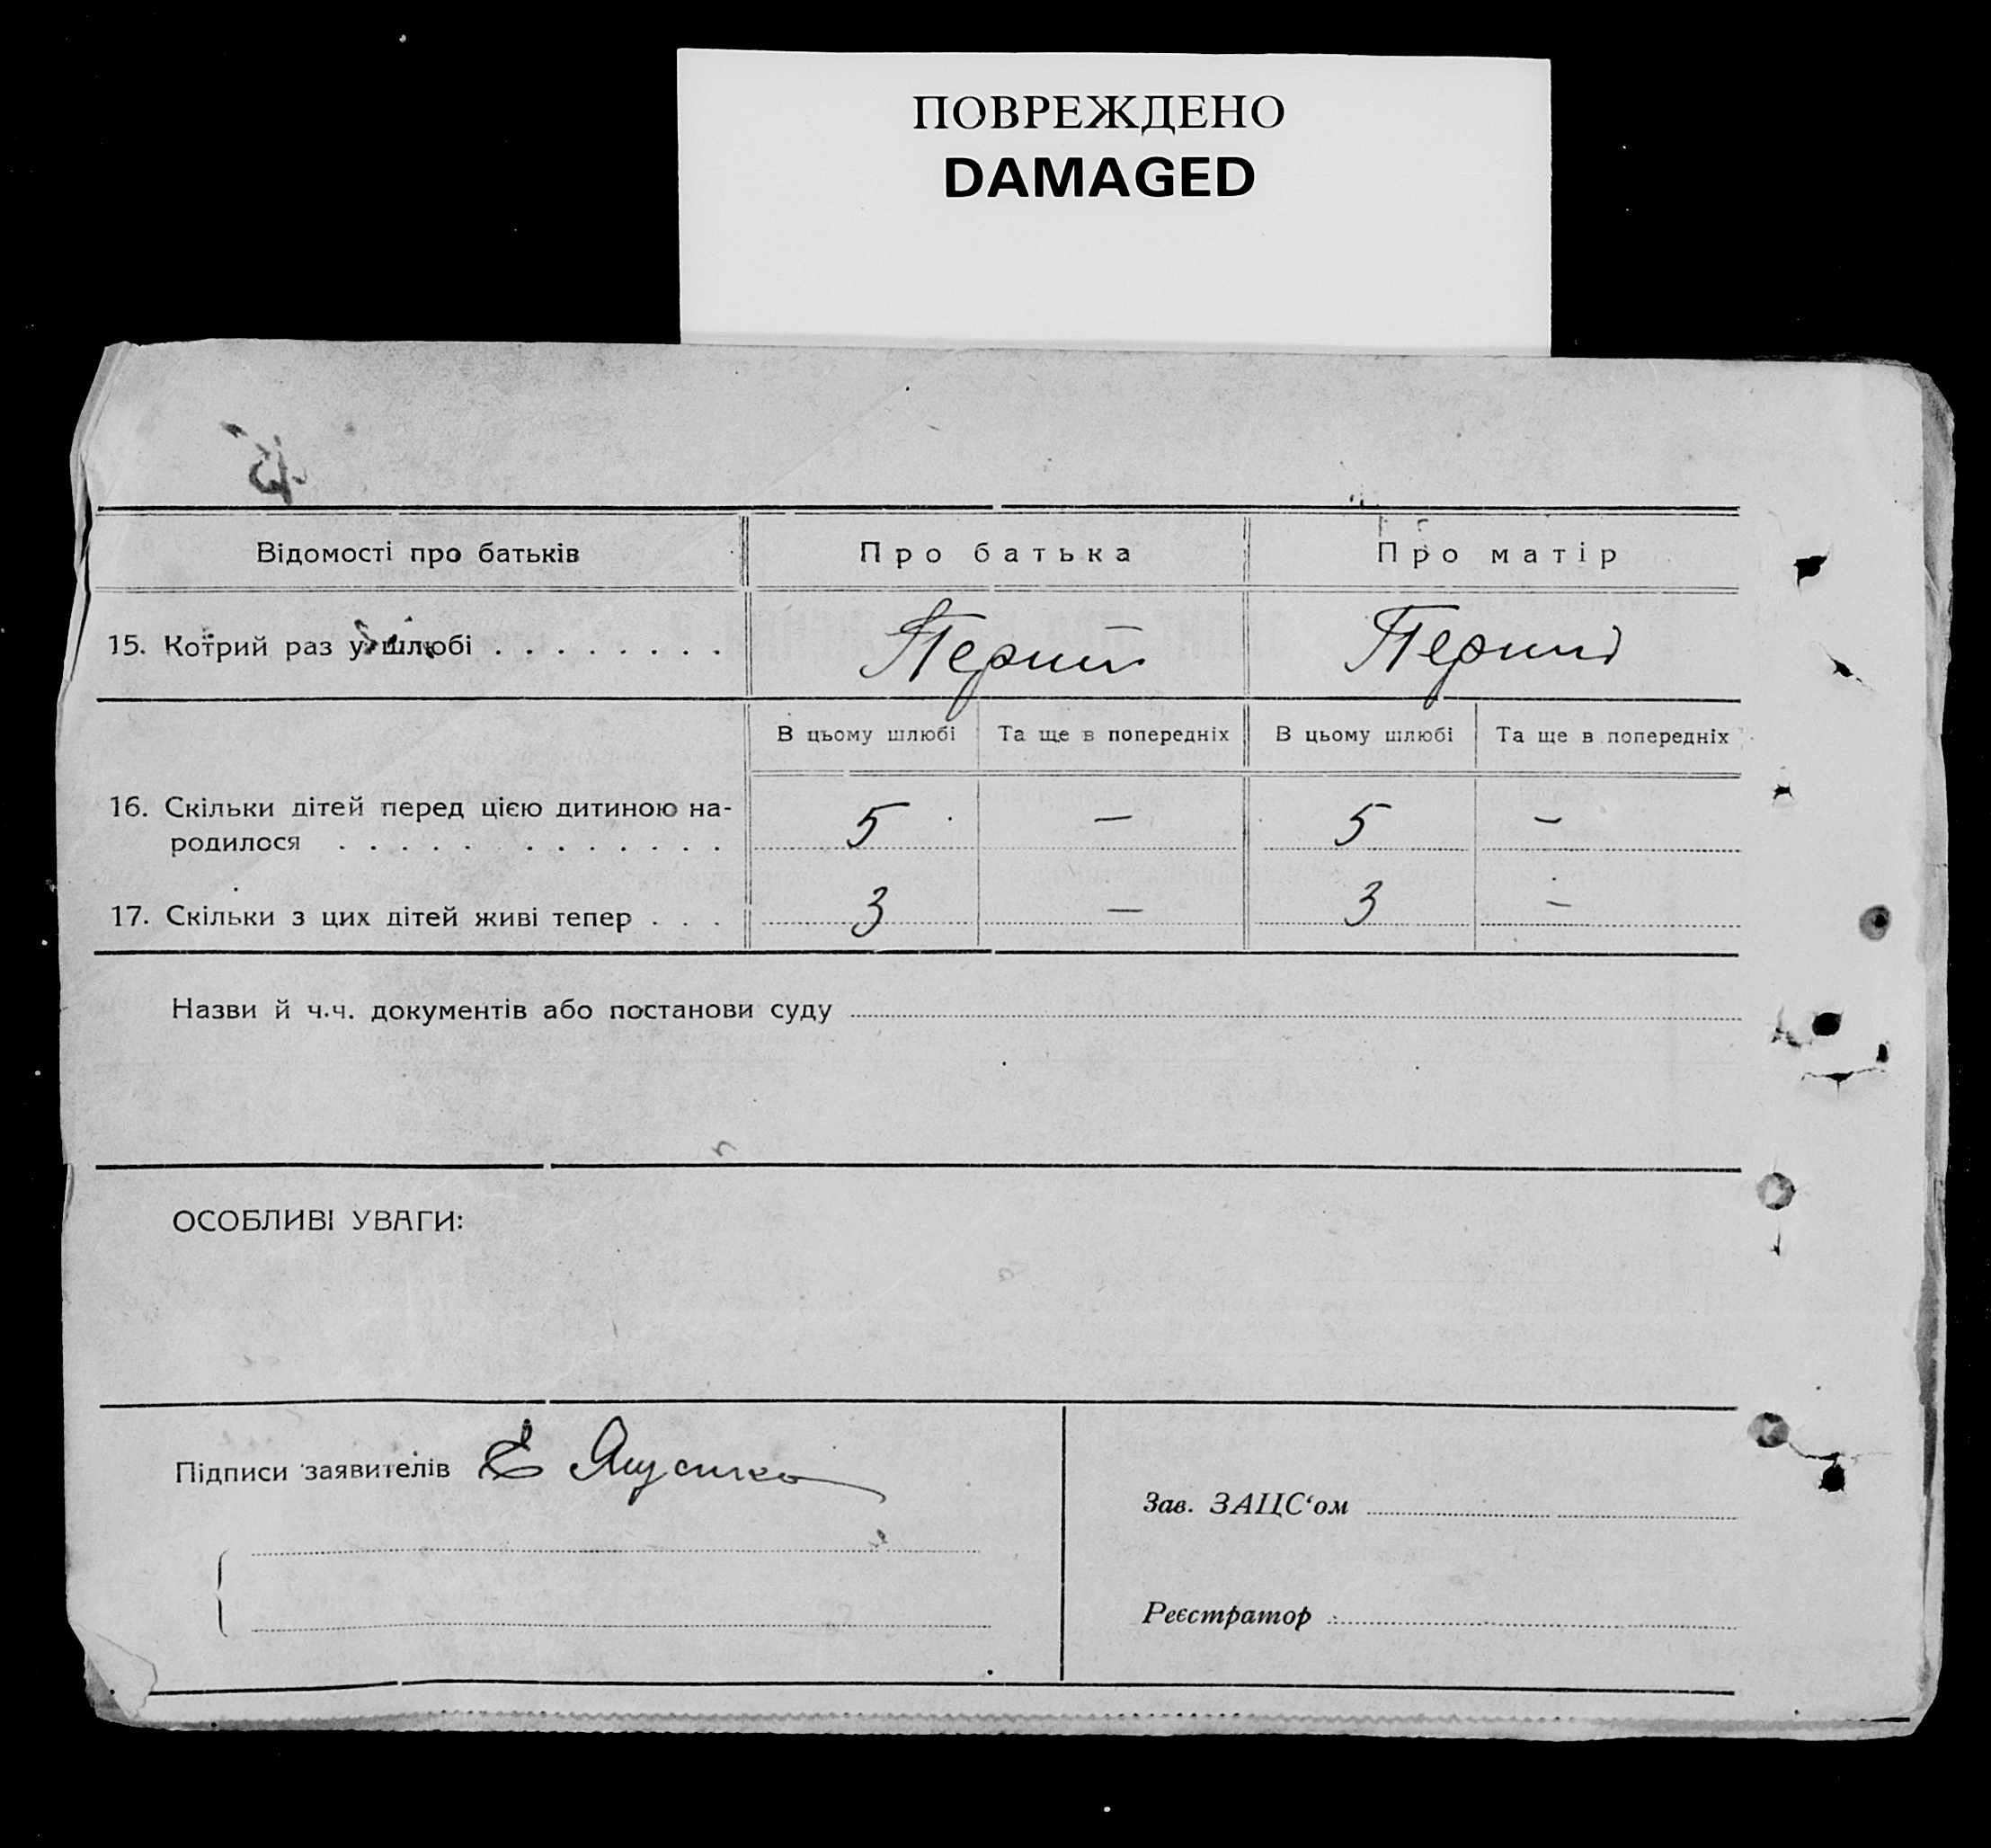 ПОВРЕЖДЕНО
DAMAGED
Відомості про батьків Про батька Про матір
15. Котрий раз у шлюбі . . . . . . . . Перший Перший
В цьому шлюбі Та ще в попередніх В цьому шлюбі Та ще в попередніх
16. Скільки дітей перед цією дитиною на-
родилося . . . . . . . . . . . . 5 — 5 —
17. Скільки з цих дітей живі тепер . . . 3 — 3 —
Назви й ч.ч. документів або постанови суду
ОСОБЛИВІ УВАГИ:
Підписи заявителів Е
Зав. ЗАЦС‘ом
Реєстратор